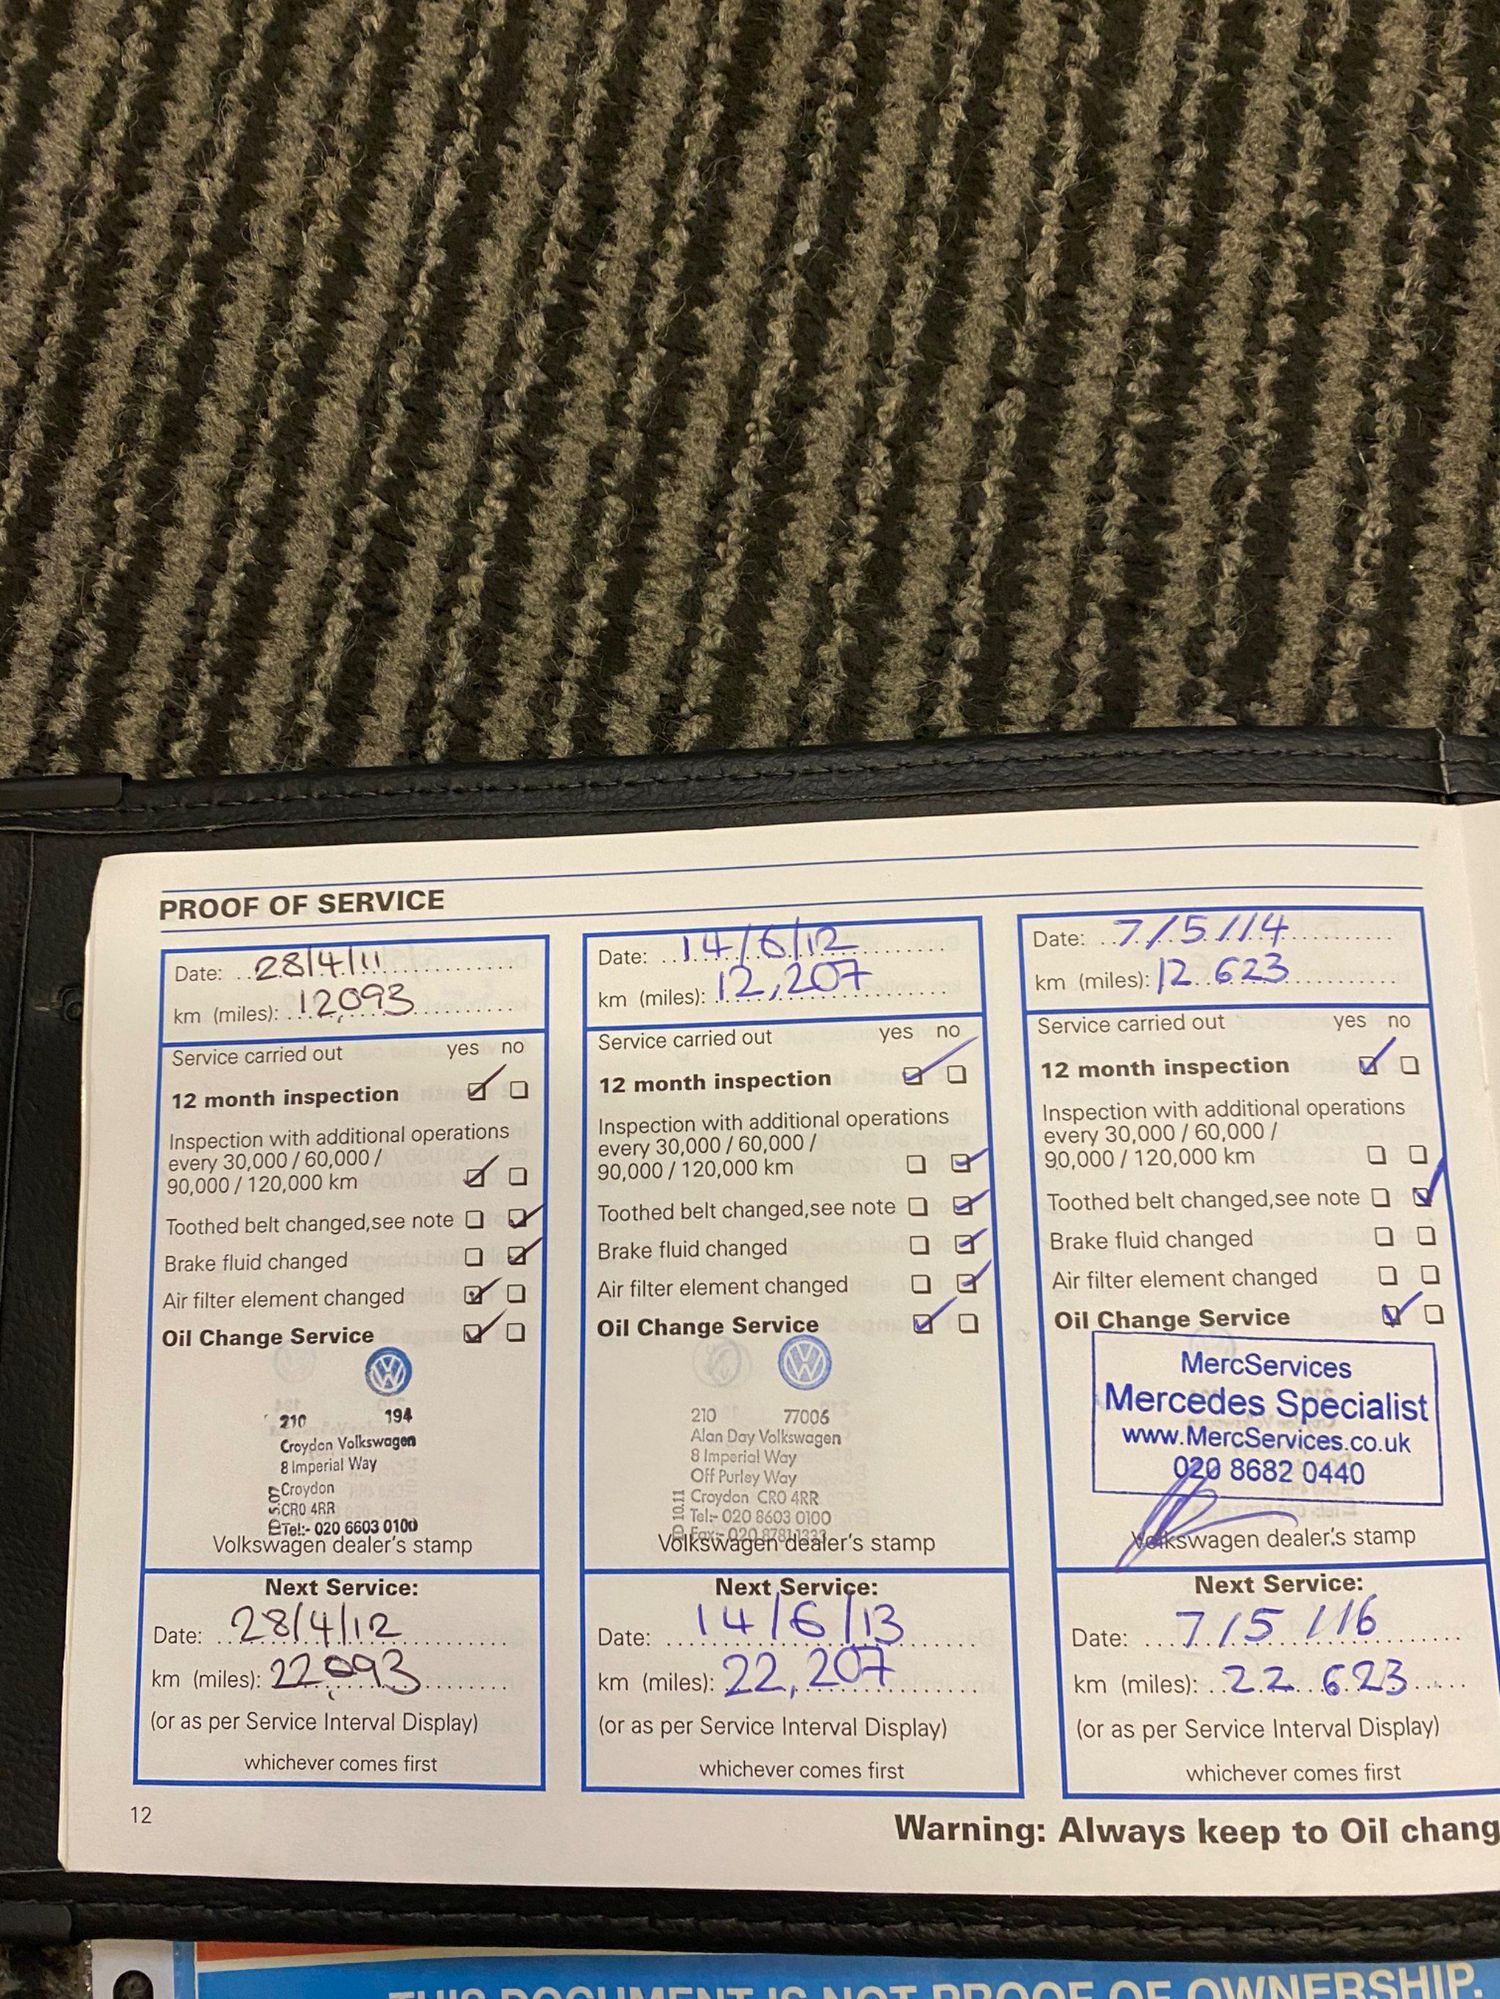 PROOF OF SERVICE
Date: 28/4/11
km (miles): 12,093
Service carried out yes no
12 month inspection
Inspection with additional operations
every 30,000 / 60,000 /
90,000 / 120,000 km
Toothed belt changed,see note
Brake fluid changed
Air filter element changed
Oil Change Service
210 194
Croydon Volkswagen
8 Imperial Way
Croydon
CR0 4RR
Tel:- 020 6603 0100
Volkswagen dealer's stamp
Next Service:
Date: 28/4/12
km (miles): 22,093
(or as per Service Interval Display)
whichever comes first
Date: 14/6/12
km (miles): 12,207
Service carried out yes no
12 month inspection
Inspection with additional operations
every 30,000 / 60,000 /
90,000 / 120,000 km
Toothed belt changed,see note
Brake fluid changed
Air filter element changed
Oil Change Service
210 77006
Alan Day Volkswagen
8 Imperial Way
Off Purley Way
Croydon CR0 4RR
Tel:- 020 8603 0100
Volkswagen dealer's stamp
Next Service:
Date: 14/6/13
km (miles): 22,207
(or as per Service Interval Display)
whichever comes first
Date: 7/5/14
km (miles): 12 623
Service carried out yes no
12 month inspection
Inspection with additional operations
every 30,000 / 60,000 /
90,000 / 120,000 km
Toothed belt changed,see note
Brake fluid changed
Air filter element changed
Oil Change Service
MercServices
Mercedes Specialist
www.MercServices.co.uk
020 8682 0440
Volkswagen dealer's stamp
Next Service:
Date: 7/5/16
km (miles): 22 623
(or as per Service Interval Display)
whichever comes first
12
Warning: Always keep to Oil chang
THIS DOCUMENT IS NOT PROOF OF OWNERSHIP.